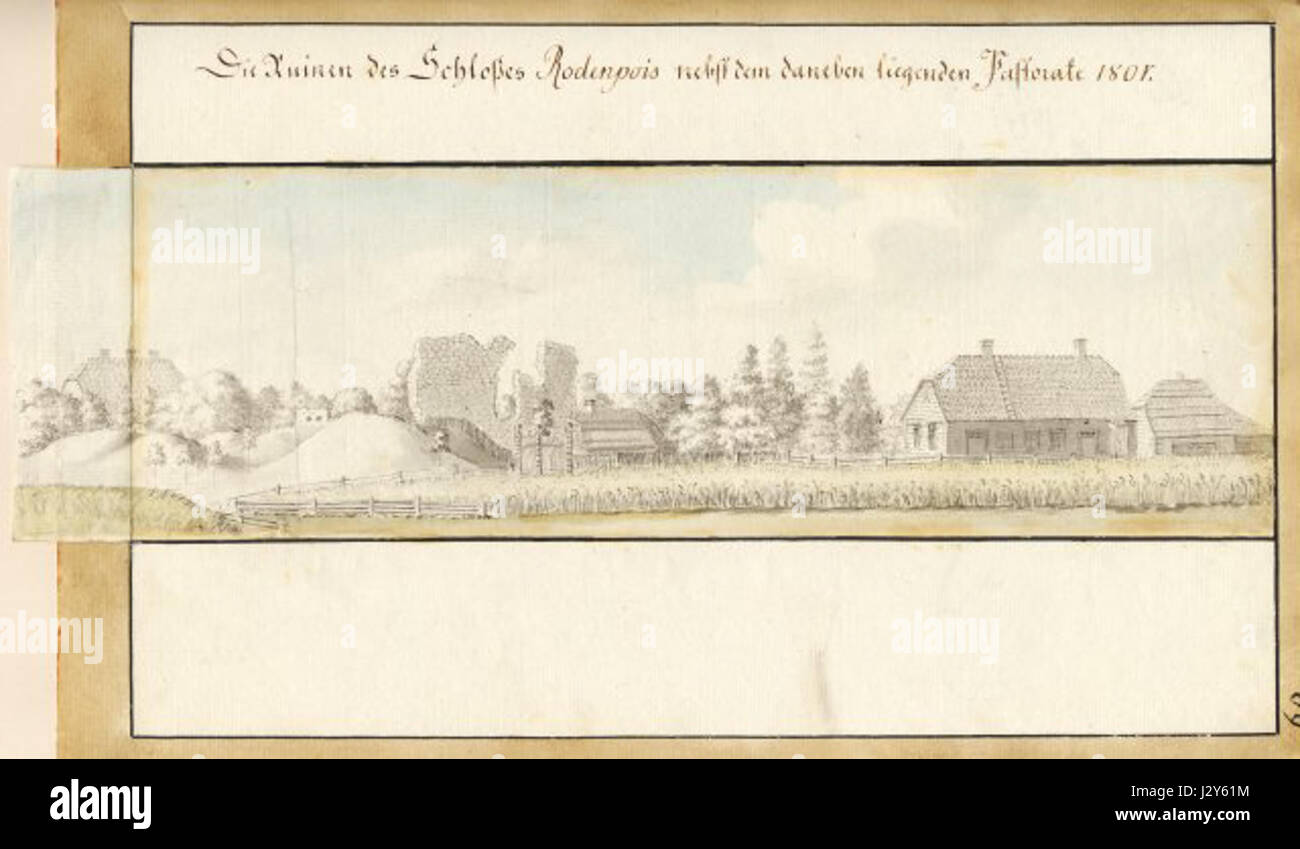 Die Ruinen des Schloßes Rodenpois nebst dem daneben liegenden Pastorate 1801.
alamy
alamy
alamy
alamy
alamy
a
a
a
a
a
a
alamy
Image ID: J2Y61M
www.alamy.com